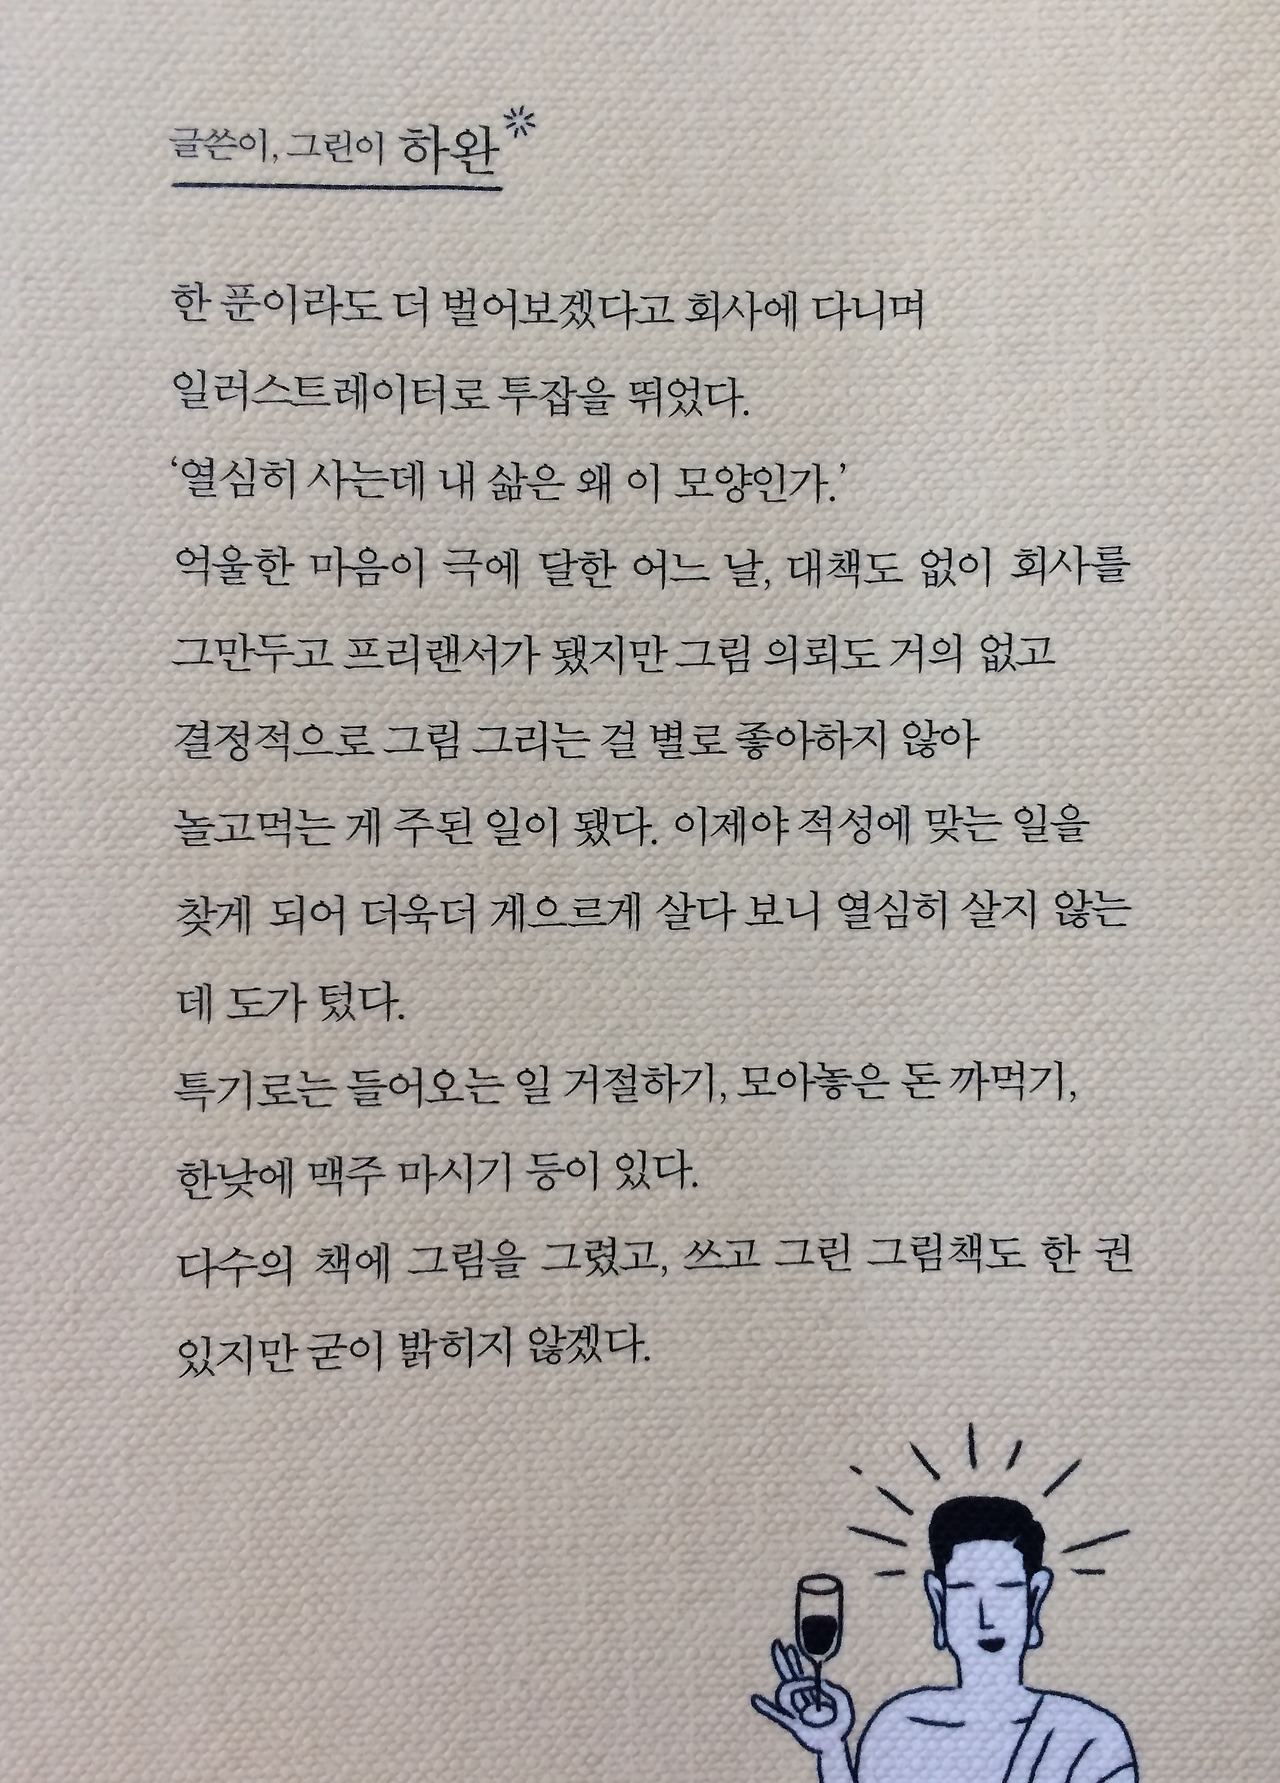 글쓴이, 그린이 하완
한 푼이라도 더 벌어보겠다고 회사에 다니며
일러스트레이터로 투잡을 뛰었다.
‘열심히 사는데 내 삶은 왜 이 모양인가.’
억울한 마음이 극에 달한 어느 날, 대책도 없이 회사를
그만두고 프리랜서가 됐지만 그림 의뢰도 거의 없고
결정적으로 그림 그리는 걸 별로 좋아하지 않아
놀고먹는 게 주된 일이 됐다. 이제야 적성에 맞는 일을
찾게 되어 더욱더 게으르게 살다 보니 열심히 살지 않는
데 도가 텄다.
특기로는 들어오는 일 거절하기, 모아놓은 돈 까먹기,
한낮에 맥주 마시기 등이 있다.
다수의 책에 그림을 그렸고, 쓰고 그린 그림책도 한 권
있지만 굳이 밝히지 않겠다.